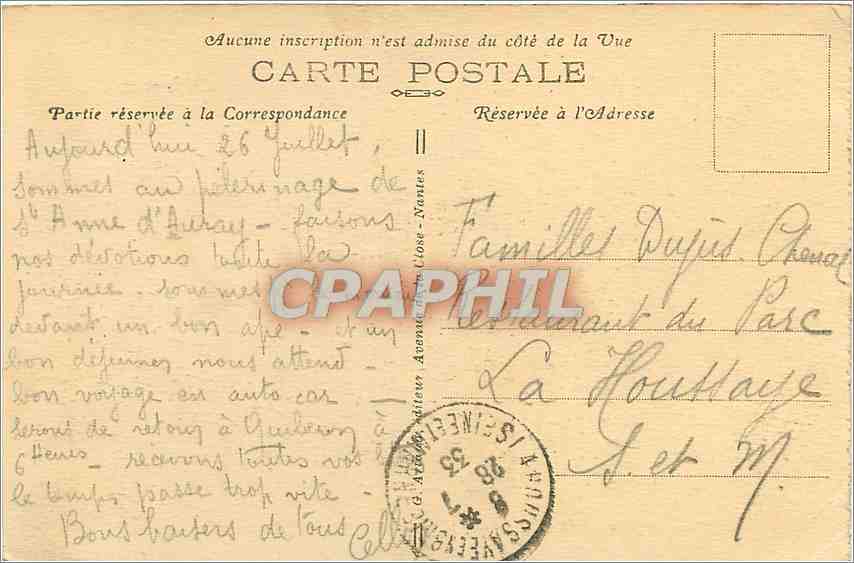 Aucune inscription n'est admise du côté de la Vue
CARTE POSTALE
Partie réservée à la Correspondance
Réservée à l'Adresse
Aujourd'hui 26 Juillet,
sommes au pèlerinage de
Ste Anne d'Auray - faisons
nos dévotions toute la
journée sommes
devant un bon apé - et un
bon déjeuner nous attend -
bon voyage en auto car -
serons de retour à Quiberon à
6 heures - recevons toutes vos
le temps passe trop vite -
Bons baisers de tous
Familles Chenal
Restaurant du Parc
La Houssaye
S. et M.
éditeur, Avenue de la Close - Nantes
CPAPHIL
LA HOUSSAYE
28
33